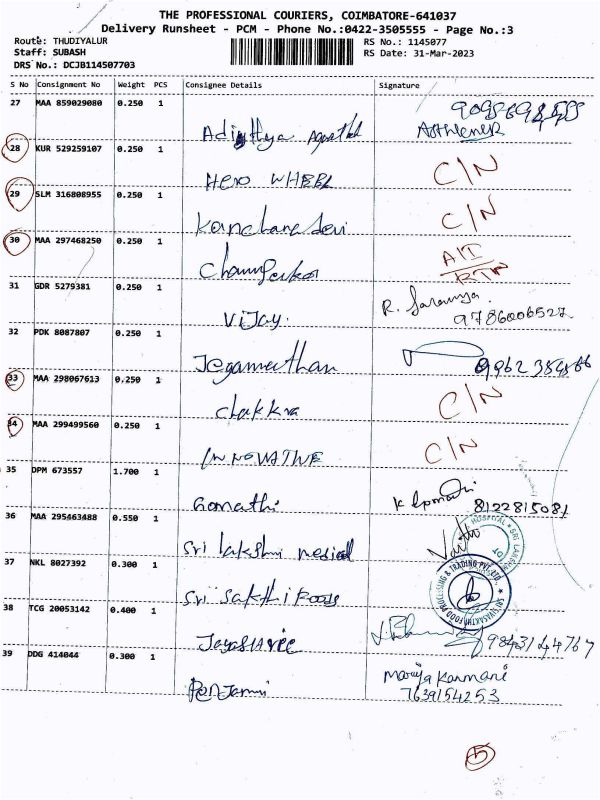 THE PROFESSIONAL COURIERS, COIMBATORE-641037
Delivery Runsheet - PCM - Phone No.:0422-3505555 - Page No.:3
Route: THUDIYALUR
RS No.: 1145077
Staff: SUBASH
RS Date: 31-Mar-2023
DRS No.: DCJB114507703
S No Consignment No Weight PCS Consignee Details Signature
27 MAA 859029080 0.250 1
28 KUR 529259107 0.250 1 C/N
HERO WHEEL
29 SLM 316808955 0.250 1 C/N
Kanchana devi
30 MAA 297468250 0.250 1
31 GDR 5279381 0.250 1 R. Saranya.
Vijay. 9786006527
32 PDK 8087807 0.250 1
33 MAA 298067613 0.250 1 C/N
chakkra
34 MAA 299499560 0.250 1 C/N
INNOVATIVE
35 DPM 673557 1.700 1
Gomathi 8122815081
36 MAA 295463488 0.550 1
Sri Lakshmi medical
37 NKL 8027392 0.300 1
Sri Sakthi Foods
38 TCG 20053142 0.400 1
Jayashree 9843144767
39 DDG 414044 0.300 1
7639154253
5